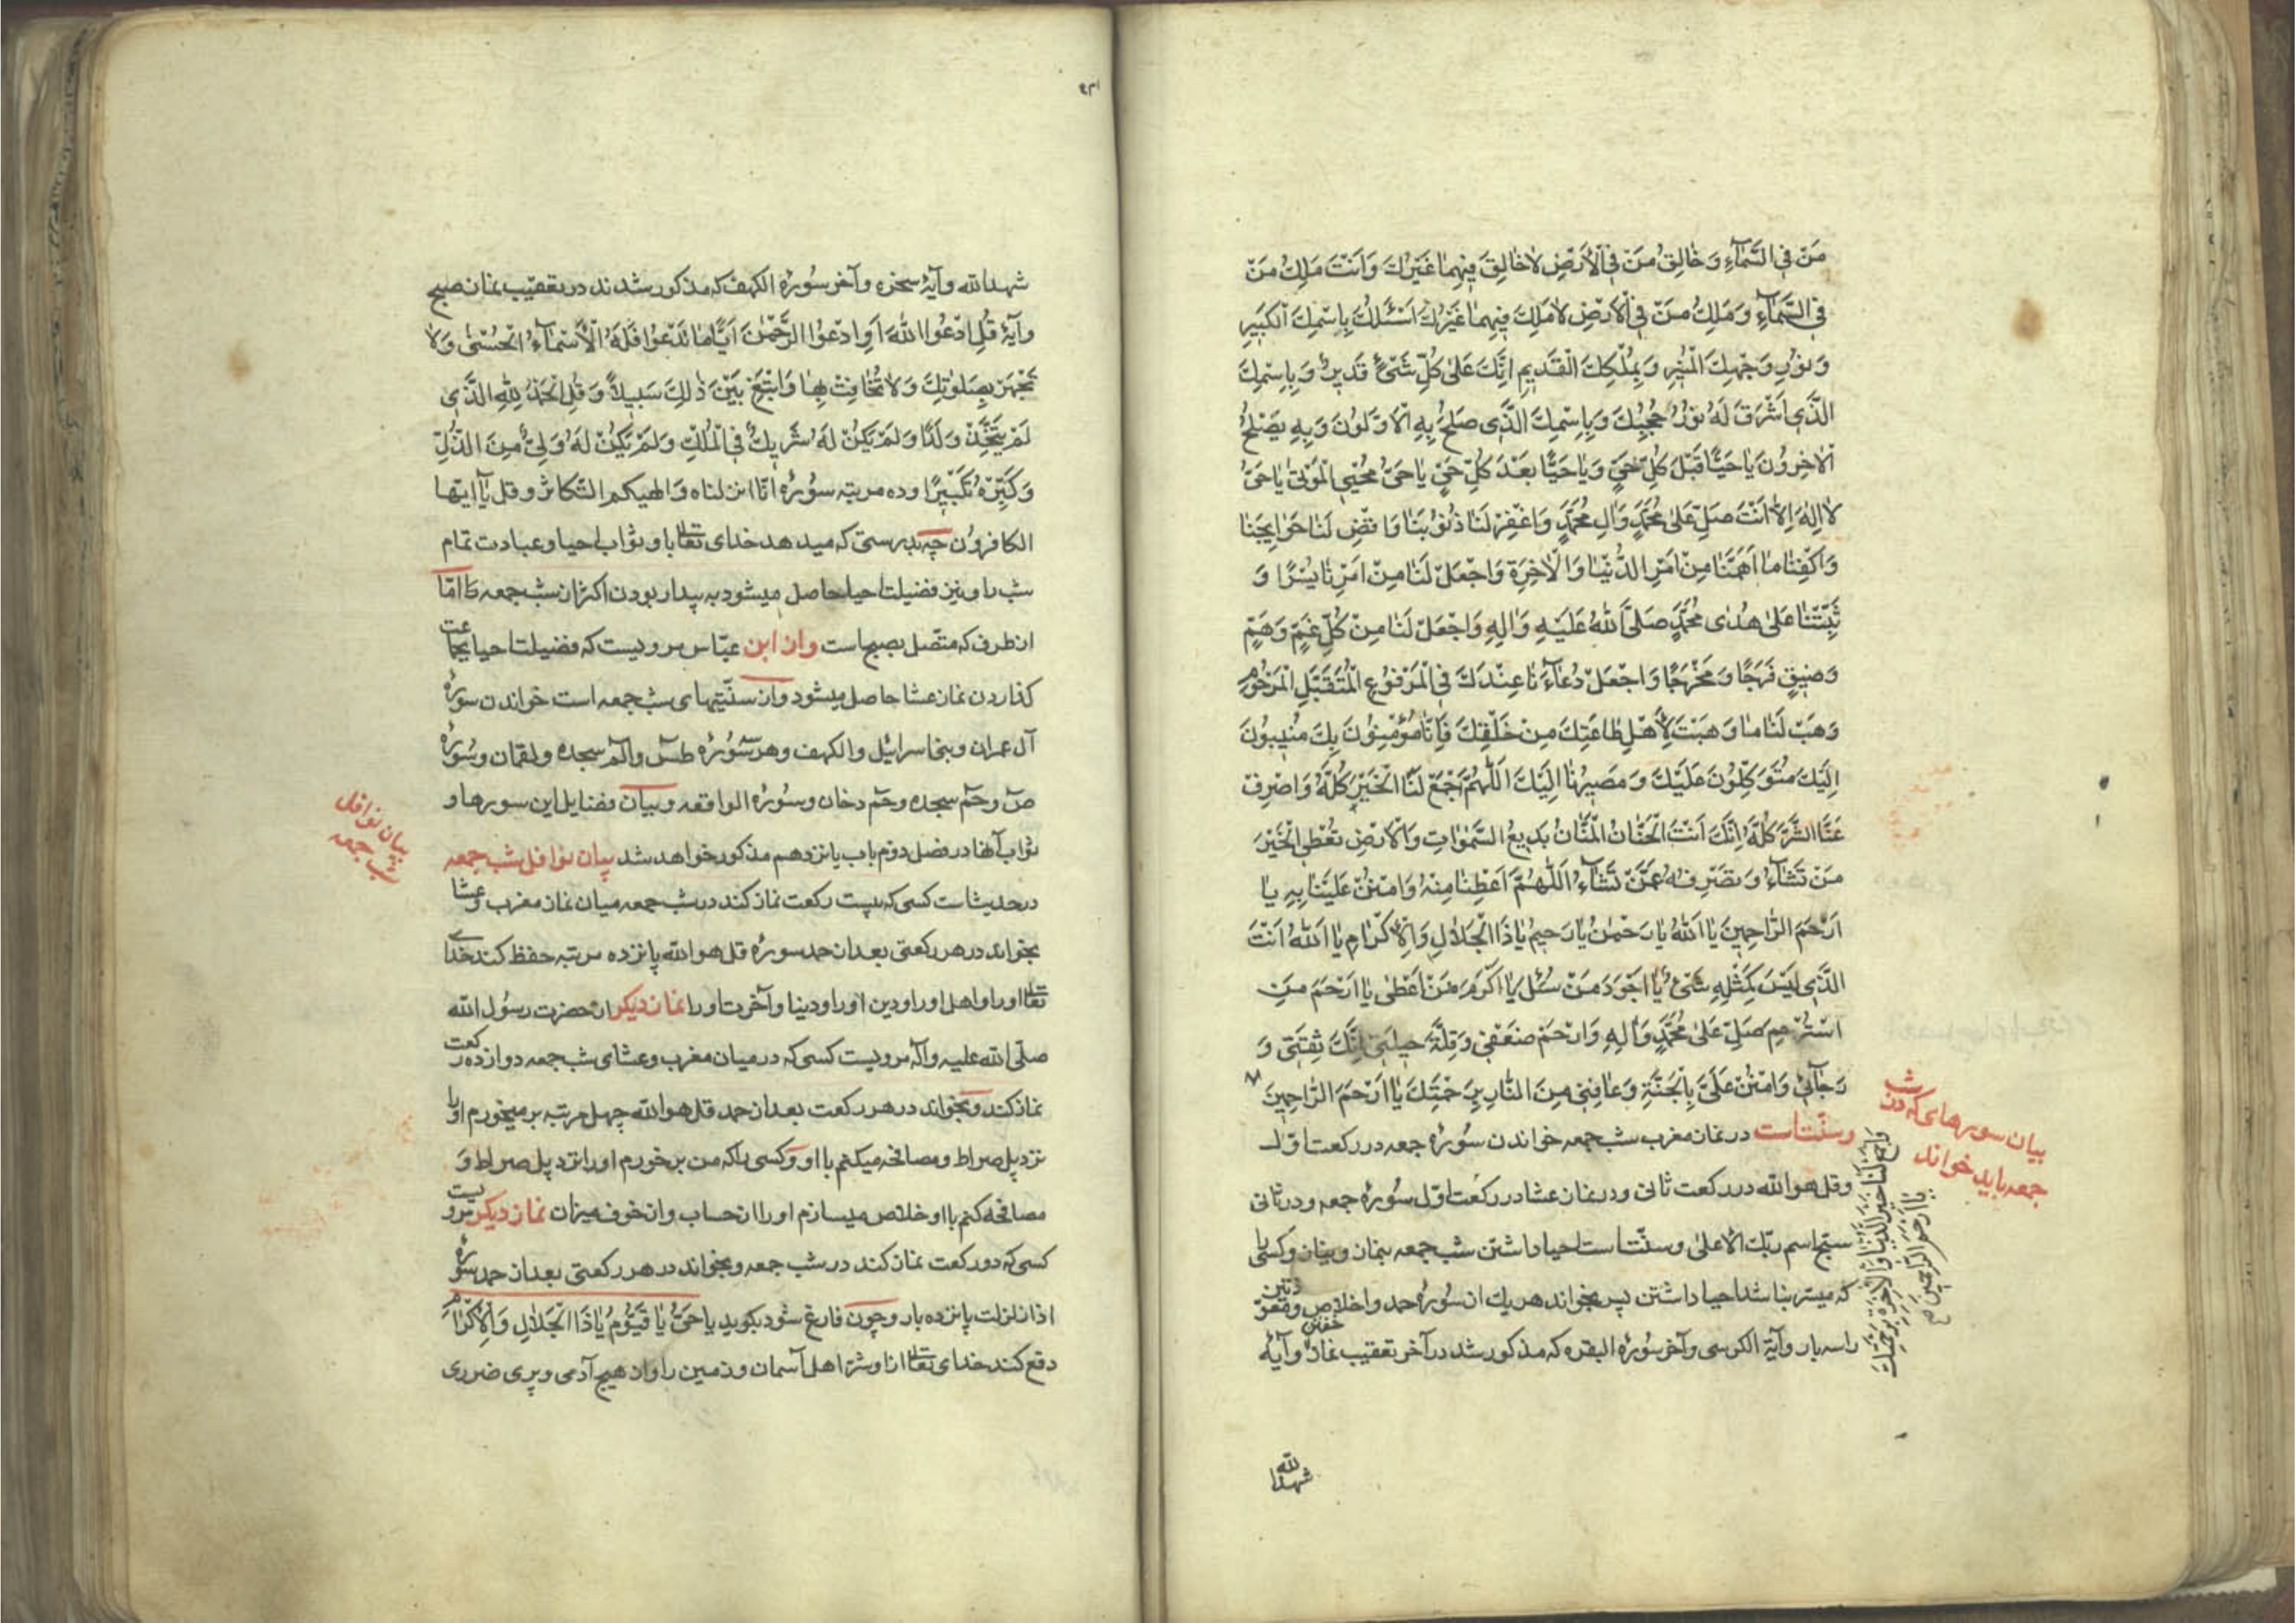 مَنْ فِي السَّمَآءِ وَخَالِقُ مَنْ فِي الْأَرْضِ لَا خَالِقَ فِيهِمَا غَيْرُكَ وَاَنْتَ مَلِكُ مَنْ
فِي السَّمَآءِ وَمَلِكُ مَنْ فِي الْأَرْضِ لَا مَلِكَ فِيهِمَا غَيْرُكَ اَسْئَلُكَ بِاسْمِكَ الْكَبِيرِ
وَنُورِ وَجْهِكَ الْمُنِيرِ وَبِمُلْكِكَ الْقَدِيمِ اِنَّكَ عَلىٰ كُلِّ شَيْءٍ قَدِيرٌ وَبِاسْمِكَ
الَّذِي اَشْرَقَ لَهُ نُورُ حُجُبِكَ وَبِاسْمِكَ الَّذِي صَلَحَ بِهِ الْاَوَّلُونَ وَبِهِ يَصْلَحُ
الْاٰخِرُونَ يَا حَيًّا قَبْلَ كُلِّ حَيٍّ وَيَا حَيًّا بَعْدَ كُلِّ حَيٍّ يَا حَيُّ مُحْيِيَ الْمَوْتىٰ يَا حَيُّ
لَا اِلٰهَ اِلَّا اَنْتَ صَلِّ عَلىٰ مُحَمَّدٍ وَاٰلِ مُحَمَّدٍ وَاغْفِرْ لَنَا ذُنُوبَنَا وَاقْضِ لَنَا حَوَايِجَنَا
وَاكْفِنَا مَا اَهَمَّنَا مِنْ اَمْرِ الدُّنْيَا وَالْاٰخِرَةِ وَاجْعَلْ لَنَا مِنْ اَمْرِنَا يُسْرًا وَ
ثَبِّتْنَا عَلىٰ هُدىٰ مُحَمَّدٍ صَلَّى اللّٰهُ عَلَيْهِ وَاٰلِهِ وَاجْعَلْ لَنَا مِنْ كُلِّ غَمٍّ وَهَمٍّ
وَضِيقٍ فَرَجًا وَمَخْرَجًا وَاجْعَلْ دُعَآءَنَا عِنْدَكَ فِي الْمَرْفُوعِ الْمُتَقَبَّلِ الْمَرْحُومِ
وَهَبْ لَنَا مَا وَهَبْتَ لِأَهْلِ طَاعَتِكَ مِنْ خَلْقِكَ فَاِنَّا مُؤْمِنُونَ بِكَ مُنِيبُونَ
اِلَيْكَ مُتَوَكِّلُونَ عَلَيْكَ وَمَصِيرُنَا اِلَيْكَ اَللّٰهُمَّ اجْمَعْ لَنَا الْخَيْرَ كُلَّهُ وَاصْرِفْ
عَنَّا الشَّرَّ كُلَّهُ اِنَّكَ اَنْتَ الْحَنَّانُ الْمَنَّانُ بَدِيعُ السَّمٰوَاتِ وَالْاَرْضِ تُعْطِي الْخَيْرَ
مَنْ تَشَآءُ وَتَصْرِفُهُ عَمَّنْ تَشَآءُ اَللّٰهُمَّ اَعْطِنَا مِنْهُ وَامْنُنْ عَلَيْنَا بِهِ يَا
اَرْحَمَ الرَّاحِمِينَ يَا اَللّٰهُ يَا رَحْمٰنُ يَا رَحِيمُ يَا ذَا الْجَلَالِ وَالْاِكْرَامِ يَا اَللّٰهُ اَنْتَ
الَّذِي لَيْسَ كَمِثْلِهِ شَيْءٌ يَا اَجْوَدَ مَنْ سُئِلَ يَا اَكْرَمَ مَنْ اَعْطىٰ يَا اَرْحَمَ مَنِ
اسْتُرْحِمَ صَلِّ عَلىٰ مُحَمَّدٍ وَاٰلِهِ وَارْحَمْ ضَعْفِي وَقِلَّةَ حِيلَتِي اِنَّكَ ثِقَتِي وَ
رَجَآئِي وَامْنُنْ عَلَيَّ بِالْجَنَّةِ وَعَافِنِي مِنَ النَّارِ بِرَحْمَتِكَ يَا اَرْحَمَ الرَّاحِمِينَ
وسنّت است در نماز مغرب شب جمعه خواندن سُورهٔ جمعه در ركعت اوّل
وقل هو الله در ركعت ثانى ودر نماز عشا در ركعت اوّل سُورهٔ جمعه ودر ثانى
سبّح اسم ربّك الاعلىٰ وسنّت است احيا داشتن شب جمعه بنماز ونياز وكسى را
كه ميسّر نباشد احيا داشتن پس بخواند هر يك از سُورهٔ حمد واخلاص ومعوّذتين
را سه بار وآية الكرسى وآخر سُورهٔ البقره كه مذكور شد در آخر تعقيب نماز خفتن وآيهٔ
بيان سورهاى كه در شب
جمعه بايد خواند
وَاجْمَعْ لَنَا خَيْرَ الدُّنْيَا وَالْاٰخِرَةِ بِرَحْمَتِكَ
يَا اَرْحَمَ الرَّاحِمِينَ
شهدالله
شهدالله وآيهٔ سخره وآخر سُورهٔ الكهف كه مذكور شدند در تعقيب نماز صبح
وآيهٔ قُلِ ادْعُوا اللّٰهَ اَوِ ادْعُوا الرَّحْمٰنَ اَيًّا مَا تَدْعُوا فَلَهُ الْأَسْمَآءُ الْحُسْنىٰ وَلَا
تَجْهَرْ بِصَلٰوتِكَ وَلَا تُخَافِتْ بِهَا وَابْتَغِ بَيْنَ ذٰلِكَ سَبِيلًا وَقُلِ الْحَمْدُ لِلّٰهِ الَّذِي
لَمْ يَتَّخِذْ وَلَدًا وَلَمْ يَكُنْ لَهُ شَرِيكٌ فِي الْمُلْكِ وَلَمْ يَكُنْ لَهُ وَلِيٌّ مِنَ الذُّلِّ
وَكَبِّرْهُ تَكْبِيرًا وده مرتبه سُورهٔ انّا انزلناه والهيكم التّكاثر وقل يا ايّها
الكافرون چه بدرستى كه ميدهد خداى تعالى باو ثواب احيا وعبادت تمام
شب را ونيز فضيلت احيا حاصل ميشود به بيدار بودن اكثر آن شب جمعه امّا
از طرف كه متّصل بصبح است واز ابن عبّاس مرويست كه فضيلت احيا بجماعت
گذاردن نماز عشا حاصل ميشود واز سنّتيهاى شب جمعه است خواندن سورهٔ
آل عمران وبنى اسرائيل والكهف وهر سُورهٔ طس والم سجده ولقمان وسُورهٔ
ص وحم سجده وحم دخان وسُورهٔ الواقعه وبيان فضايل اين سورها و
ثواب آنها در فصل دوّم باب پانزدهم مذكور خواهد شد بيان نوافل شب جمعه
در حديث است كسى كه بيست ركعت نماز كند در شب جمعه ميان نماز مغرب وعشا
بخواند در هر ركعتى بعد از حمد سورهٔ قل هو الله پانزده مرتبه حفظ كند خداى
تعالى او را واهل او را ودين او را ودنيا وآخرت او را نماز ديگر از حضرت رسُول الله
صلّى الله عليه وآله مرويست كسى كه در ميان مغرب وعشاى شب جمعه دوازده ركعت
نماز كند وبخواند در هر ركعت بعد از حمد قل هو الله چهل مرتبه بر ميخورم او را
نزد پل صراط ومصافحه ميكنم با او وكسى را كه من بر خورم او را نزد پل صراط و
مصافحه كنم با او خلاص ميسازم او را از حساب واز خوف ميزان نماز ديگر مرويست
كسى كه دو ركعت نماز كند در شب جمعه وبخواند در هر ركعتى بعد از حمد سورهٔ
اذا زلزلت پانزده بار وچون فارغ شود بگويد يَا حَيُّ يَا قَيُّومُ يَا ذَا الْجَلَالِ وَالْاِكْرَامِ
دفع كند خداى تعالى از او شرّ اهل آسمان وزمين را واز هيچ آدمى وپرى ضررى
بيان نوافل
شب جمعه